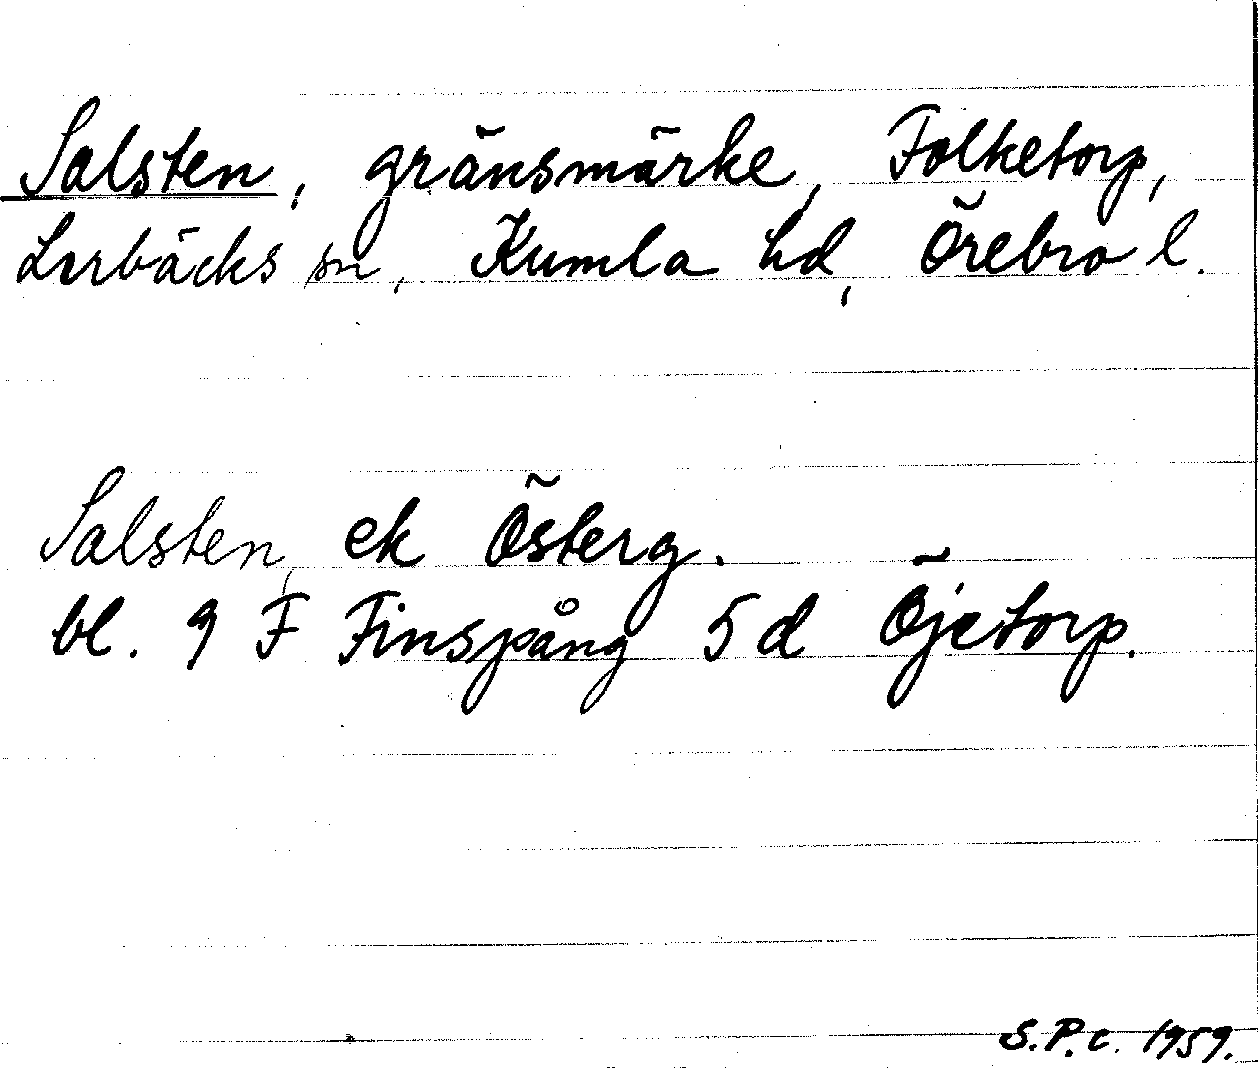 Salsten, gränsmärke, Folketorp,
Lerbäcks sn, Kumla hd, Örebro l.
Salsten, ek Österg.
bl. 9 F Finspång 5 d Öjetorp.
S.P.C. 1959.